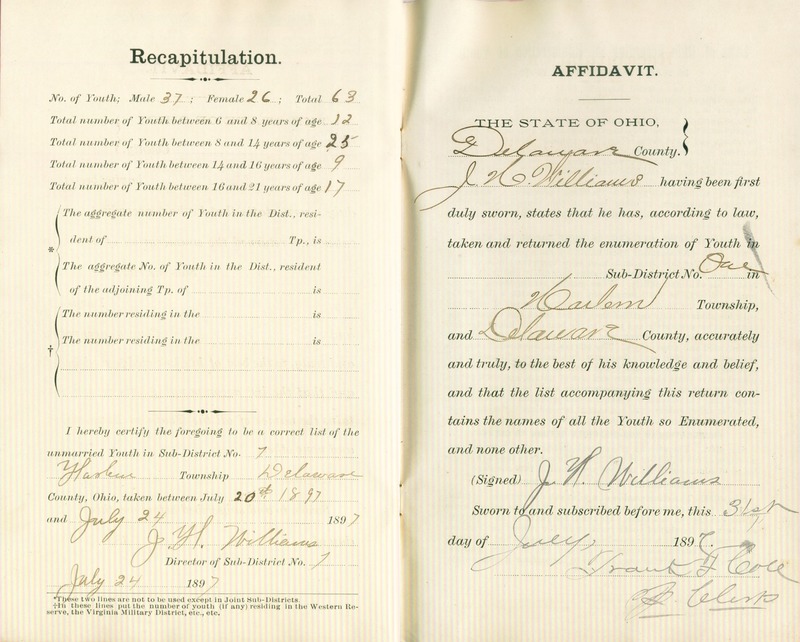 Recapitulation.
No. of Youth; Male 37; Female 26; Total 63
Total number of Youth between 6 and 8 years of age 12
Total number of Youth between 8 and 14 years of age 25
Total number of Youth between 14 and 16 years of age 9
Total number of Youth between 16 and 21 years of age 17
The aggregate number of Youth in the Dist., resi-
dent of Tp., is
*
The aggregate No. of Youth in the Dist., resident
of the adjoining Tp. of is
The number residing in the is
†
The number residing in the is
I hereby certify the foregoing to be a correct list of the
unmarried Youth in Sub-District No. 1
Harlem Township Delaware
County, Ohio, taken between July 20th 1897
and July 24 1897
J. H. Williams
Director of Sub-District No. 1
July 24 1897
*These two lines are not to be used except in Joint Sub-Districts.
†In these lines put the number of youth (if any) residing in the Western Re-
serve, the Virginia Military District, etc., etc.
AFFIDAVIT.
THE STATE OF OHIO,
Delaware County.
J. H. Williams having been first
duly sworn, states that he has, according to law,
taken and returned the enumeration of Youth in
Sub-District No. One in
Harlem Township,
and Delaware County, accurately
and truly, to the best of his knowledge and belief,
and that the list accompanying this return con-
tains the names of all the Youth so Enumerated,
and none other.
(Signed) J. H. Williams
Sworn to and subscribed before me, this 31st
day of July, 1897.
Cole
Clerk